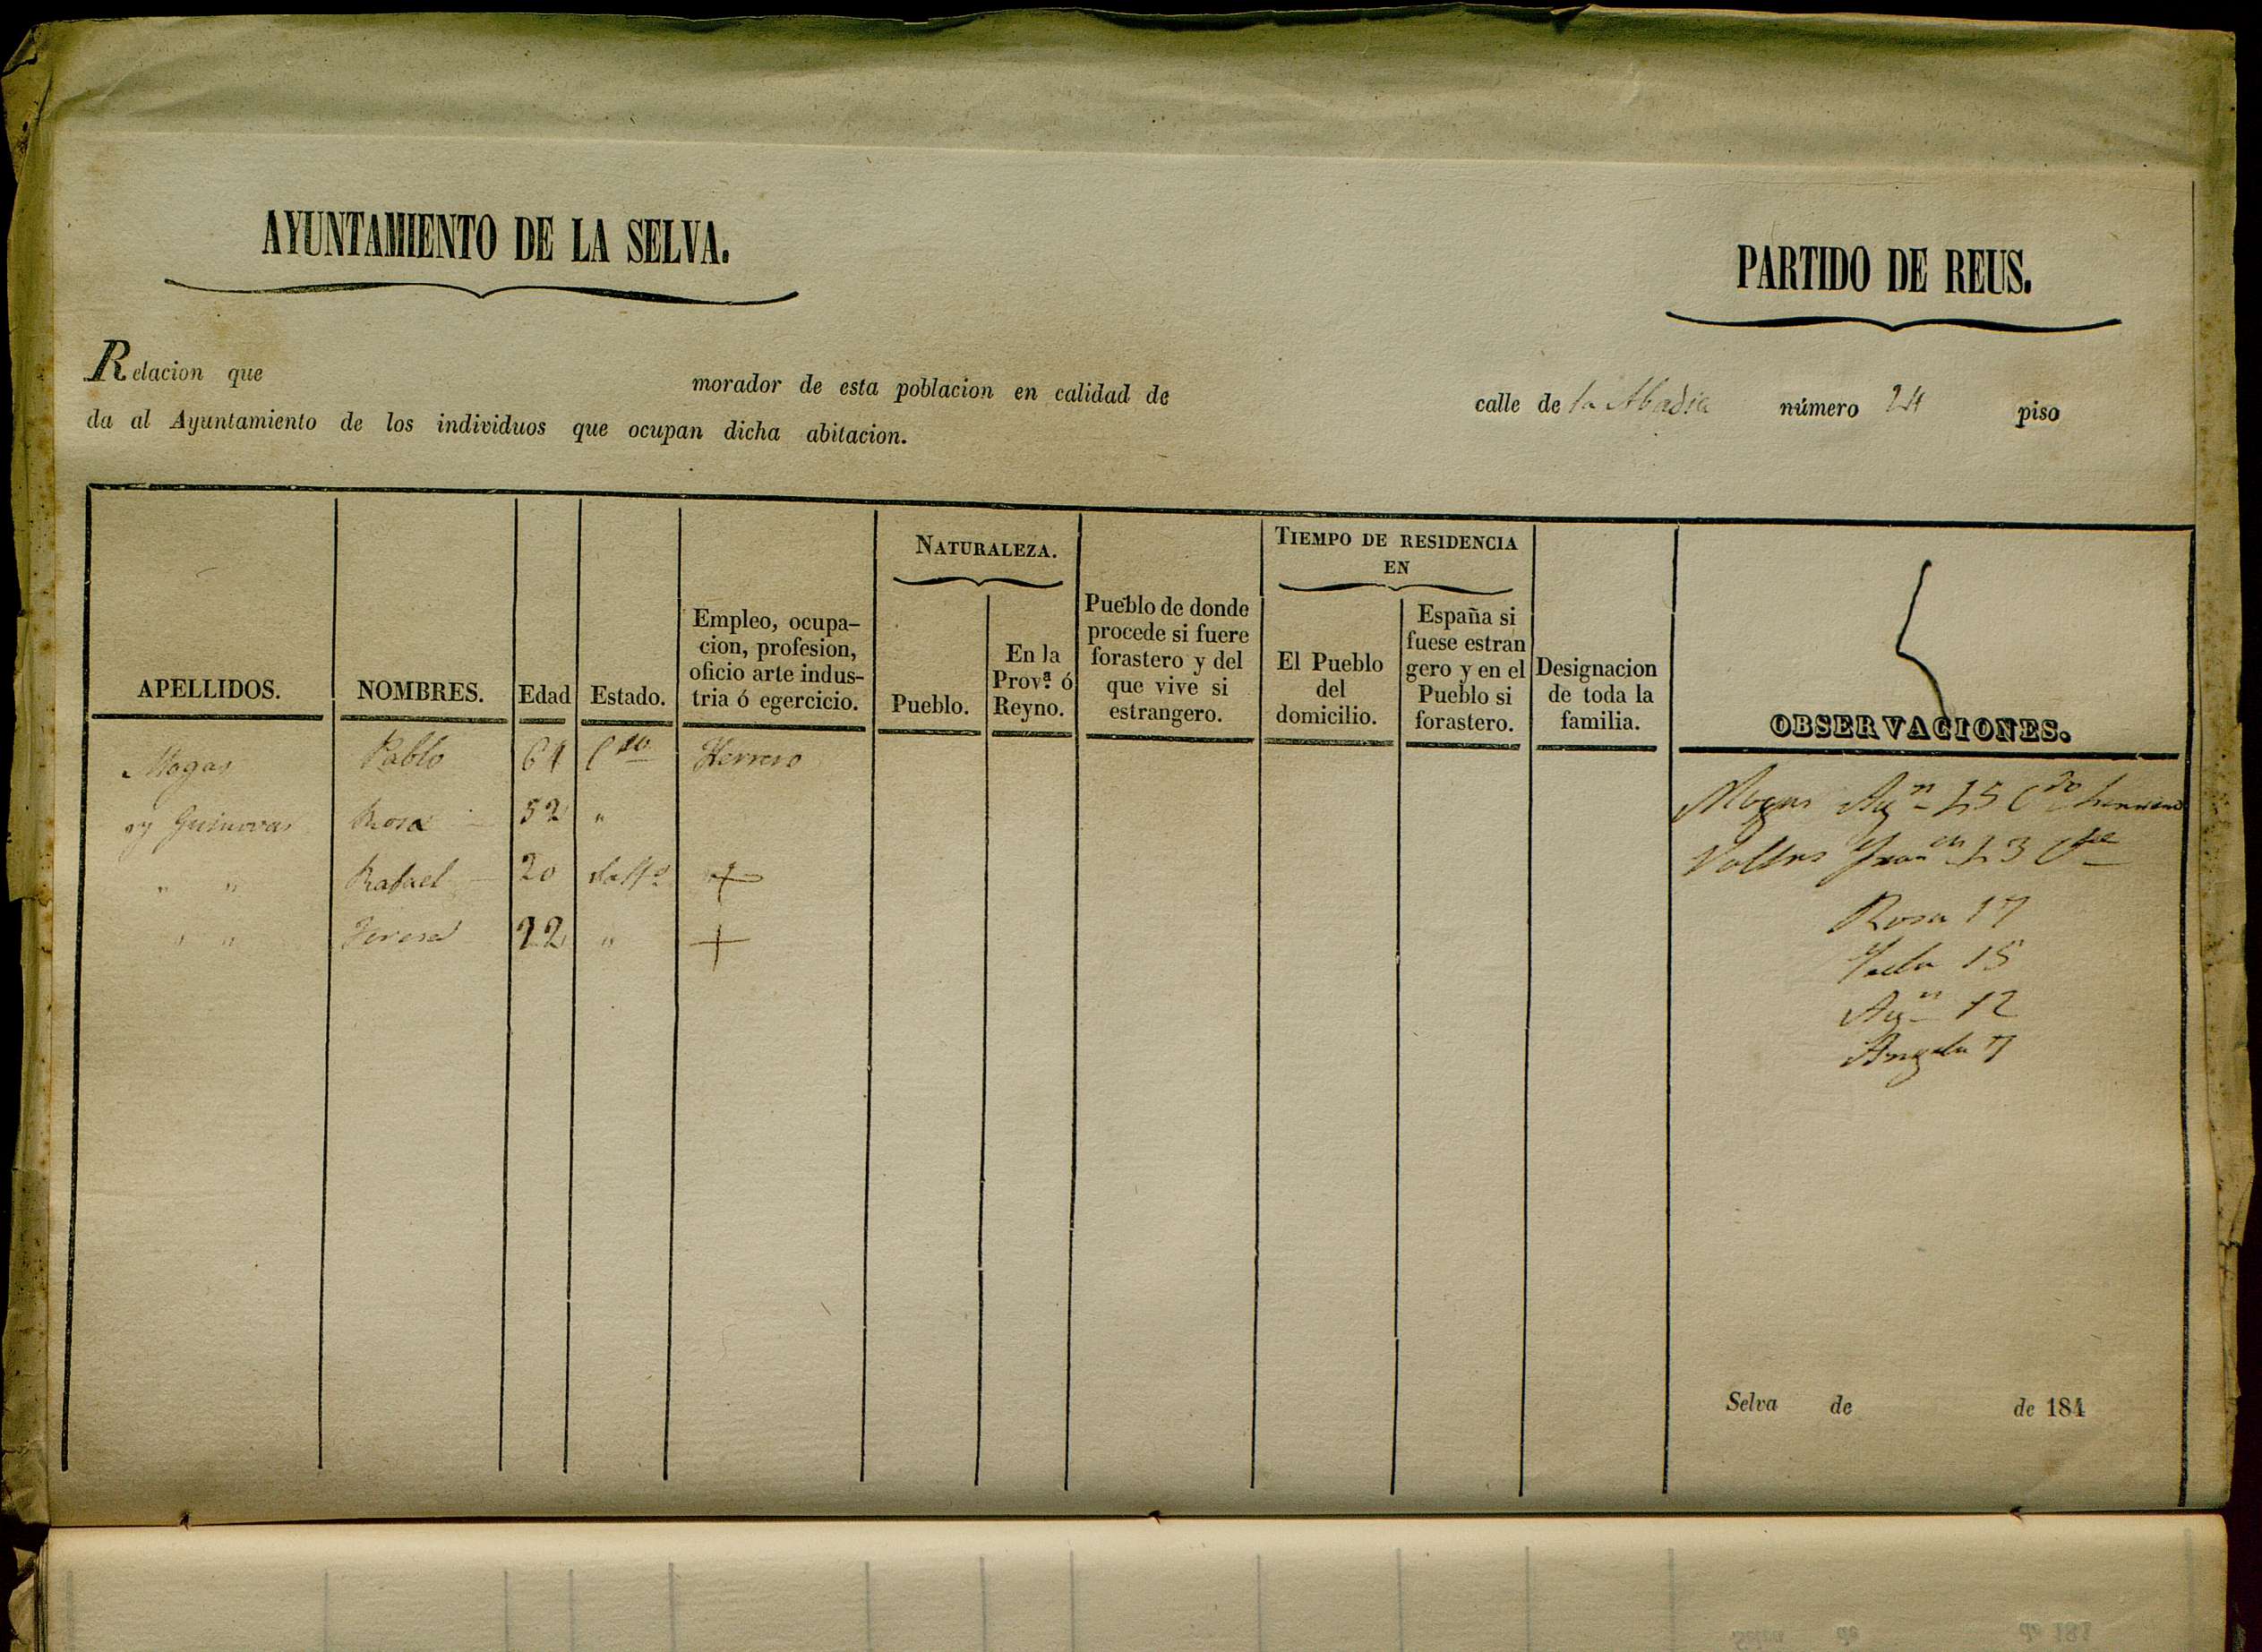 AYUNTAMIENTO DE LA SELVA.
PARTIDO DE REUS.
Relacion que morador de esta poblacion en calidad de calle de la Abadia número 24 piso
da al Ayuntamiento de los individuos que ocupan dicha abitacion.
NATURALEZA.
TIEMPO DE RESIDENCIA EN
APELLIDOS.
NOMBRES.
Edad
Estado.
Empleo, ocupa-
cion, profesion,
oficio arte indus-
tria ó egercicio.
Pueblo.
En la
Prov.ª ó
Reyno.
Pueblo de donde
procede si fuere
forastero y del
que vive si
estrangero.
El Pueblo
del
domicilio.
España si
fuese estran
gero y en el
Pueblo si
forastero.
Designacion
de toda la
familia.
OBSERVACIONES.
Magas Pablo 64 Cdo Herrero
y Guinovar Rosa 52 "
" " Rafael 20 +
" " Teresa 22 " +
Magas Agn 45 Cdo herrero
Valles Franca 43 Cda
Rosa 17
15
Agn 12
Angela 7
Selva de de 184